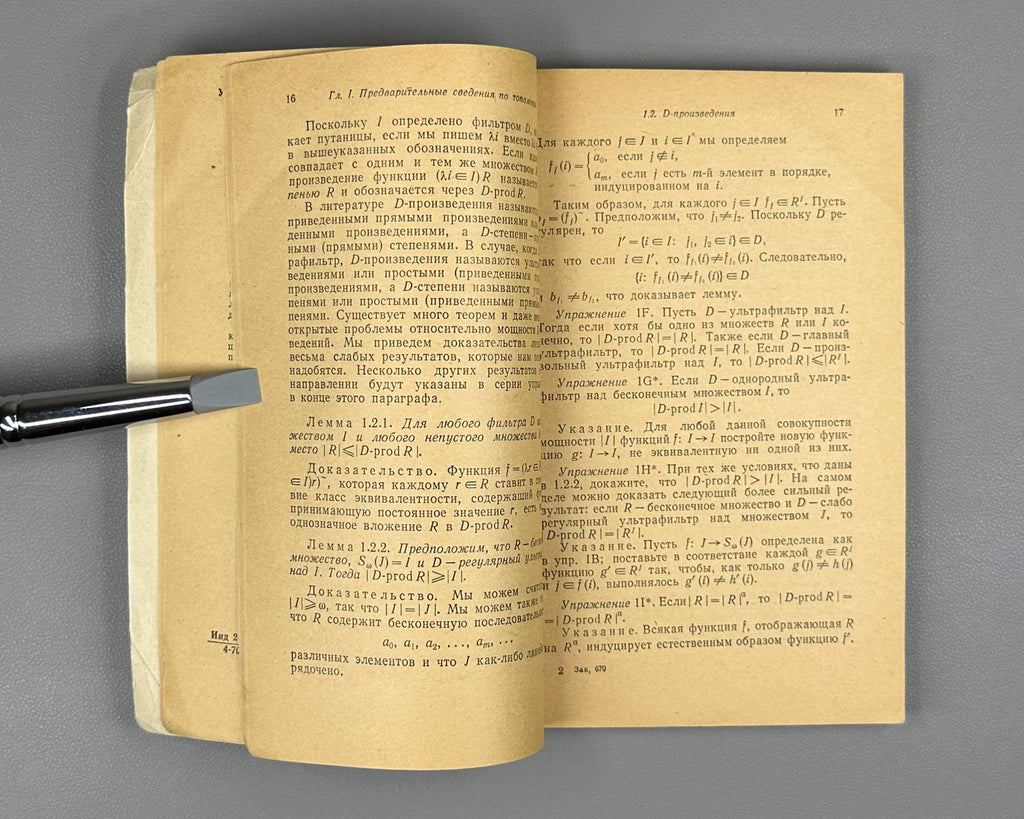 16 Гл. I. Предварительные сведения по
Поскольку I определено фильтром D,
кает путаницы, если мы пишем λi вместо
в вышеуказанных обозначениях. Если
совпадает с одним и тем же множеством
произведение функции (λi ∈ I) R
пенью R и обозначается через D-prod R.
В литературе D-произведения
приведенными прямыми произведениями
денными произведениями, а D-степени —
ными (прямыми) степенями. В случае,
рафильтр, D-произведения называются
ведениями или простыми (приведенными
произведениями, а D-степени называются
пенями или простыми (приведенными
пенями. Существует много теорем и даже
открытые проблемы относительно мощности
ведений. Мы приведем доказательства
весьма слабых результатов, которые нам
надобятся. Несколько других результатов
направлении будут указаны в серии
в конце этого параграфа.
Лемма 1.2.1. Для любого фильтра D
жеством I и любого непустого множества
место | R | ⩽ | D-prod R |.
Доказательство. Функция f = (λr ∈
∈ I) r)~, которая каждому r ∈ R ставит в
вие класс эквивалентности, содержащий
принимающую постоянное значение r, есть
однозначное вложение R в D-prod R.
Лемма 1.2.2. Предположим, что R —
множество, Sω(J) = I и D — регулярный
над I. Тогда | D-prod R | ⩾ | I |.
Доказательство. Мы можем
| I | ⩾ ω, так что | I | = | J |. Мы можем также
что R содержит бесконечную
a₀, a₁, a₂, ..., aₘ, ...
различных элементов и что J как-либо
рядочено,
Инд 2
4-70
1.2. D-произведения 17
Для каждого j ∈ J и i ∈ I мы определяем
fⱼ(i) = { a₀, если j ∉ i,
aₘ, если j есть m-й элемент в порядке,
индуцированном на i.
Таким образом, для каждого j ∈ J fⱼ ∈ Rᴵ. Пусть
= (fⱼ)~. Предположим, что j₁ ≠ j₂. Поскольку D ре-
гулярен, то
I′ = {i ∈ I: j₁, j₂ ∈ i} ∈ D,
так что если i ∈ I′, то fⱼ₁(i) ≠ fⱼ₂(i). Следовательно,
{i: fⱼ₁(i) ≠ fⱼ₂(i)} ∈ D
и bⱼ₁ ≠ bⱼ₂, что доказывает лемму.
Упражнение 1F. Пусть D — ультрафильтр над I.
Тогда если хотя бы одно из множеств R или I ко-
нечно, то | D-prod R | = | R |. Также если D — главный
ультрафильтр, то | D-prod R | = | R |. Если D — произ-
вольный ультрафильтр над I, то | D-prod R | ⩽ | Rᴵ |.
Упражнение 1G*. Если D — однородный ультра-
фильтр над бесконечным множеством I, то
| D-prod I | > | I |.
Указание. Для любой данной совокупности
мощности | I | функций f: I → I постройте новую функ-
цию g: I → I, не эквивалентную ни одной из них.
Упражнение 1H*. При тех же условиях, что даны
в 1.2.2, докажите, что | D-prod R | > | I |. На самом
деле можно доказать следующий более сильный ре-
зультат: если R — бесконечное множество и D — слабо
регулярный ультрафильтр над множеством I, то
| D-prod R | = | Rᴵ |.
Указание. Пусть f: J → Sω(J) определена как
в упр. 1B; поставьте в соответствие каждой g ∈ Rᴶ
функцию g′ ∈ Rᴵ так, чтобы, как только g(j) ≠ h(j)
и j ∈ f(i), выполнялось g′(i) ≠ h′(i).
Упражнение 1I*. Если | R | = | R |ᵅ, то | D-prod R | =
= | D-prod R |ᵅ.
Указание. Всякая функция f, отображающая R
на Rᵅ, индуцирует естественным образом функцию f′.
2 Зак. 670